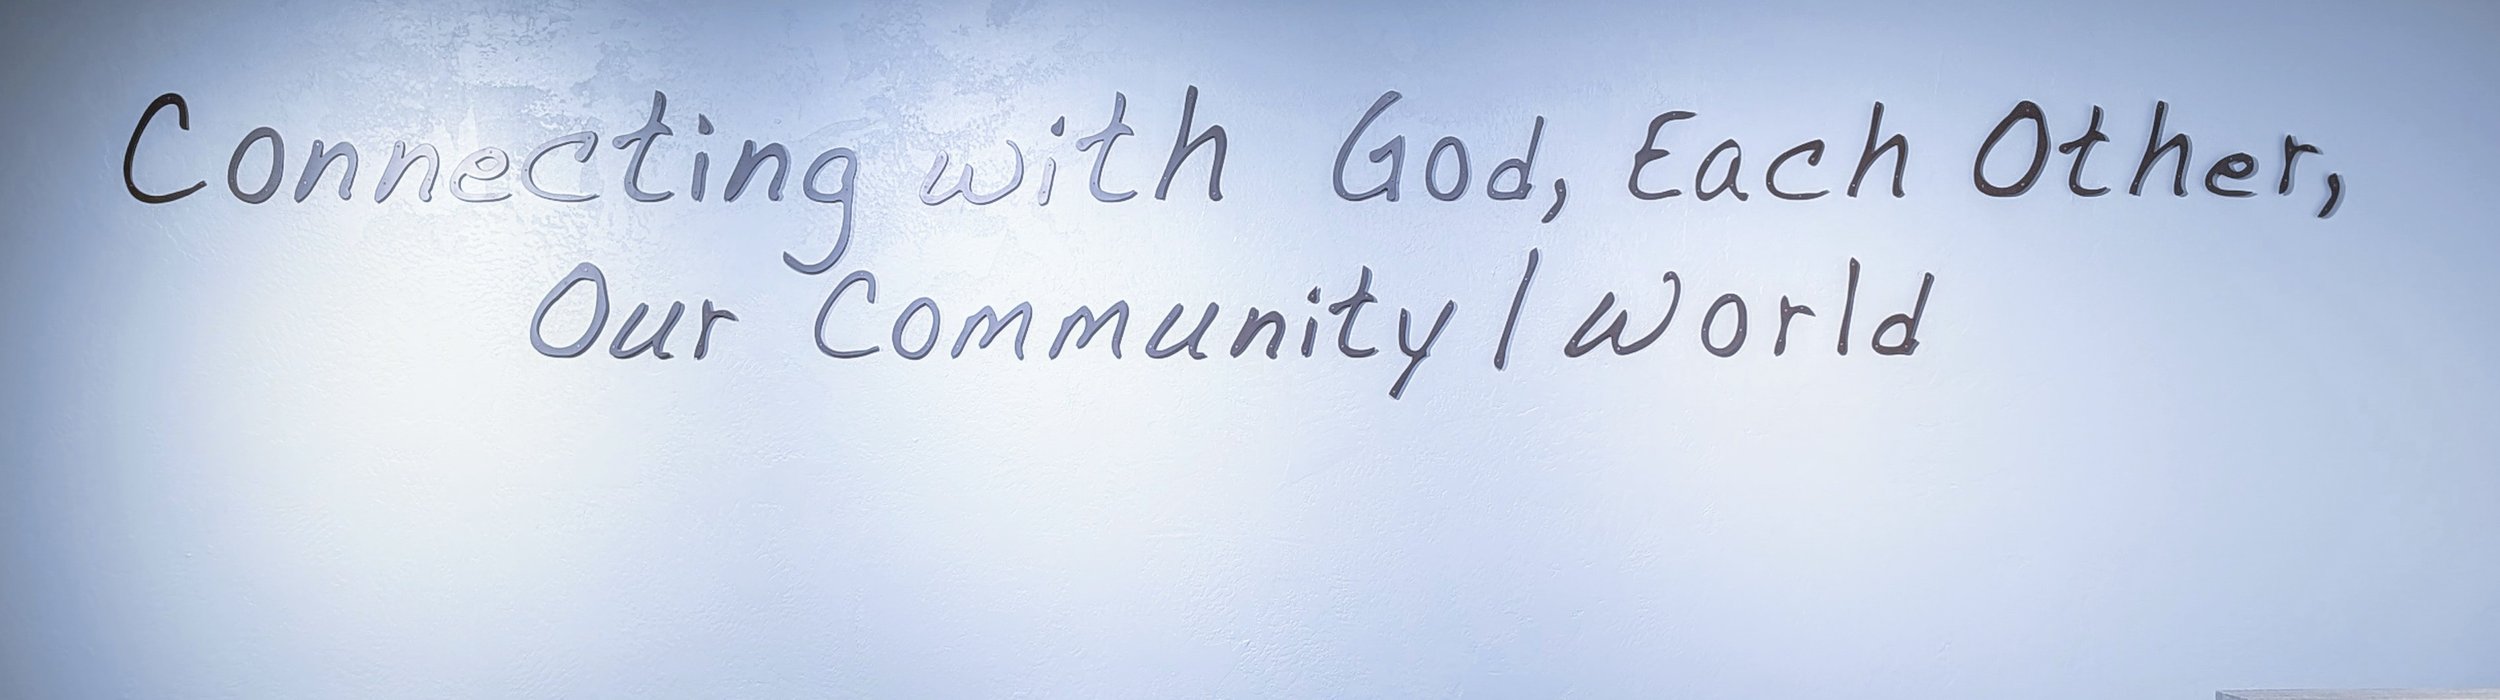 Connecting with God, Each Other,
Our Community/World